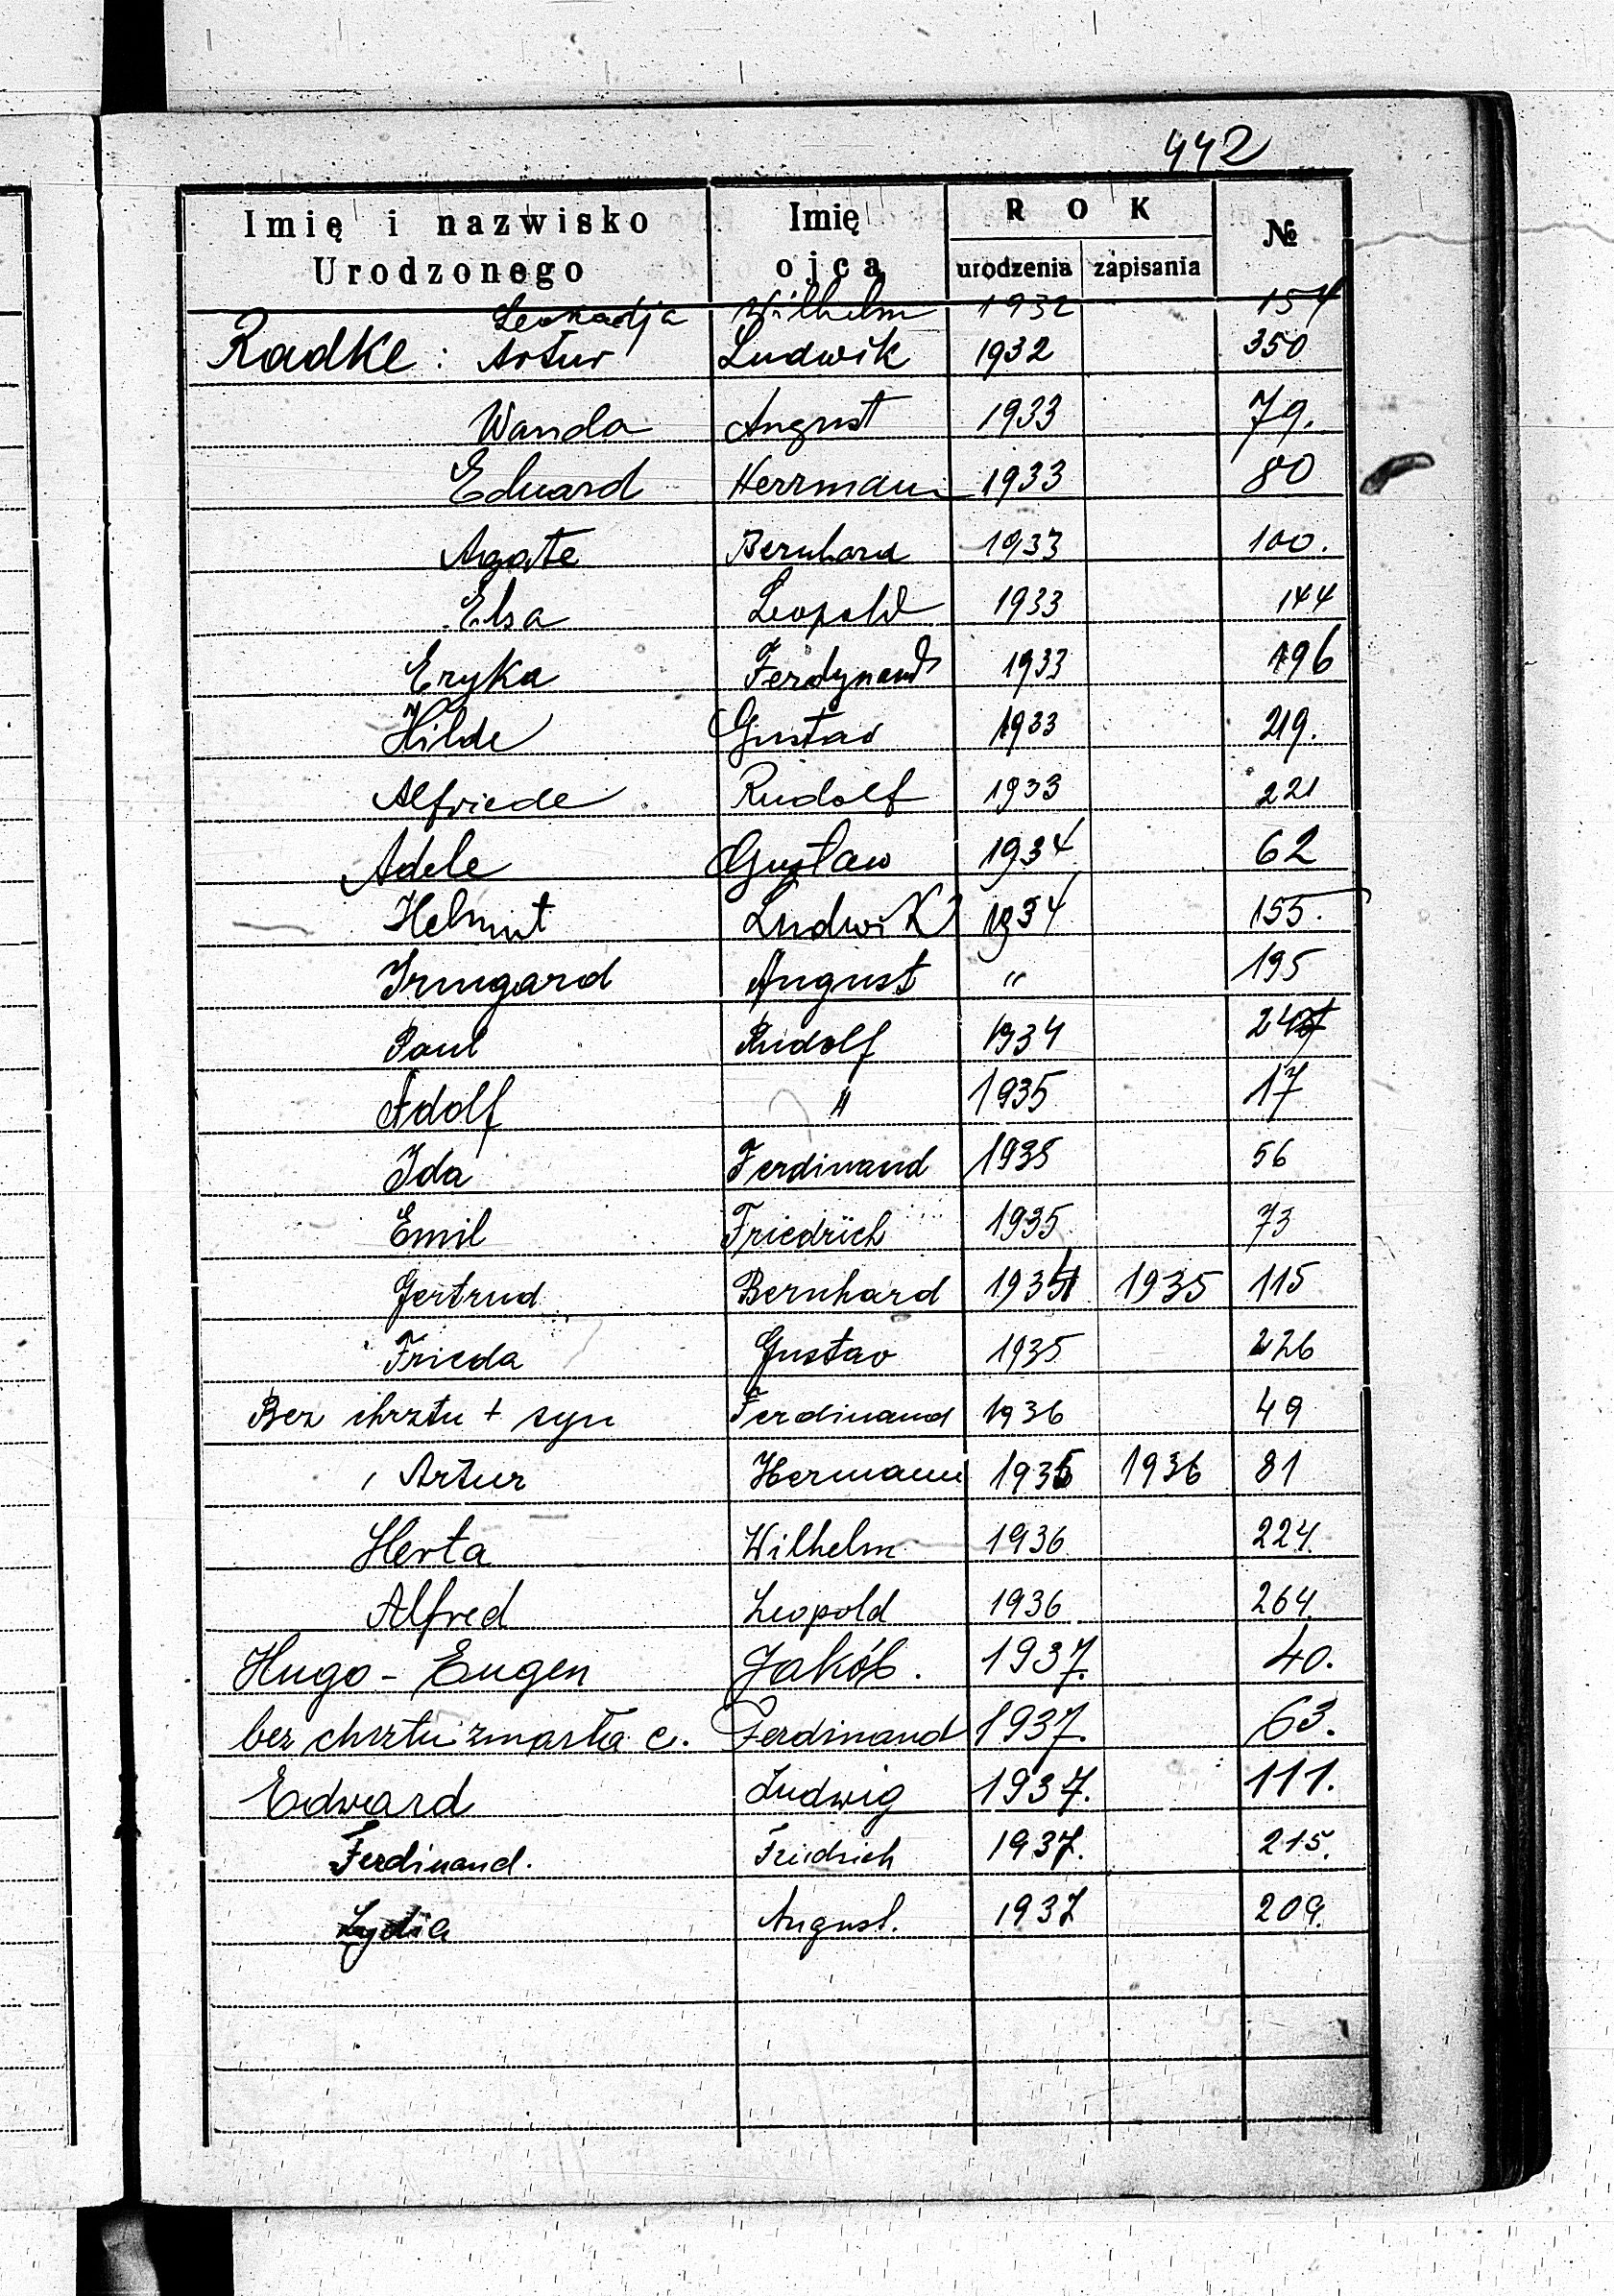 442
Imię i nazwisko Urodzonego Imię ojca ROK urodzenia zapisania №
Leokadja Wilhelm 1932 154
Radke: Artur Ludwik 1932 350
Wanda August 1933 79.
Eduard Herrmann 1933 80
Agate Bernhard 1933 100.
Elsa Leopold 1933 144
Eryka Ferdynand 1933 196
Hilde Gustav 1933 219.
Alfriede Rudolf 1933 221
Adele Gustaw 1934 62
Helmut Ludwik 1934 155.
Irmgard August " 195
Paul Rudolf 1934
Adolf " 1935 17
Ida Ferdinand 1935 56
Emil Friedrich 1935 73
Gertrud Bernhard 1934 1935 115
Frieda Gustav 1935 226
Bez chrztu + syn Ferdinand 1936 49
Artur Hermann 1935 1936 81
Herta Wilhelm 1936 224.
Alfred Leopold 1936 264
Hugo - Eugen Jakób. 1937. 40.
bez chrztu zmarła c. Ferdinand 1937. 63.
Edward Ludwig 1937. 111.
Ferdinand. Friedrich 1937. 215.
Lydia August. 1937 209.